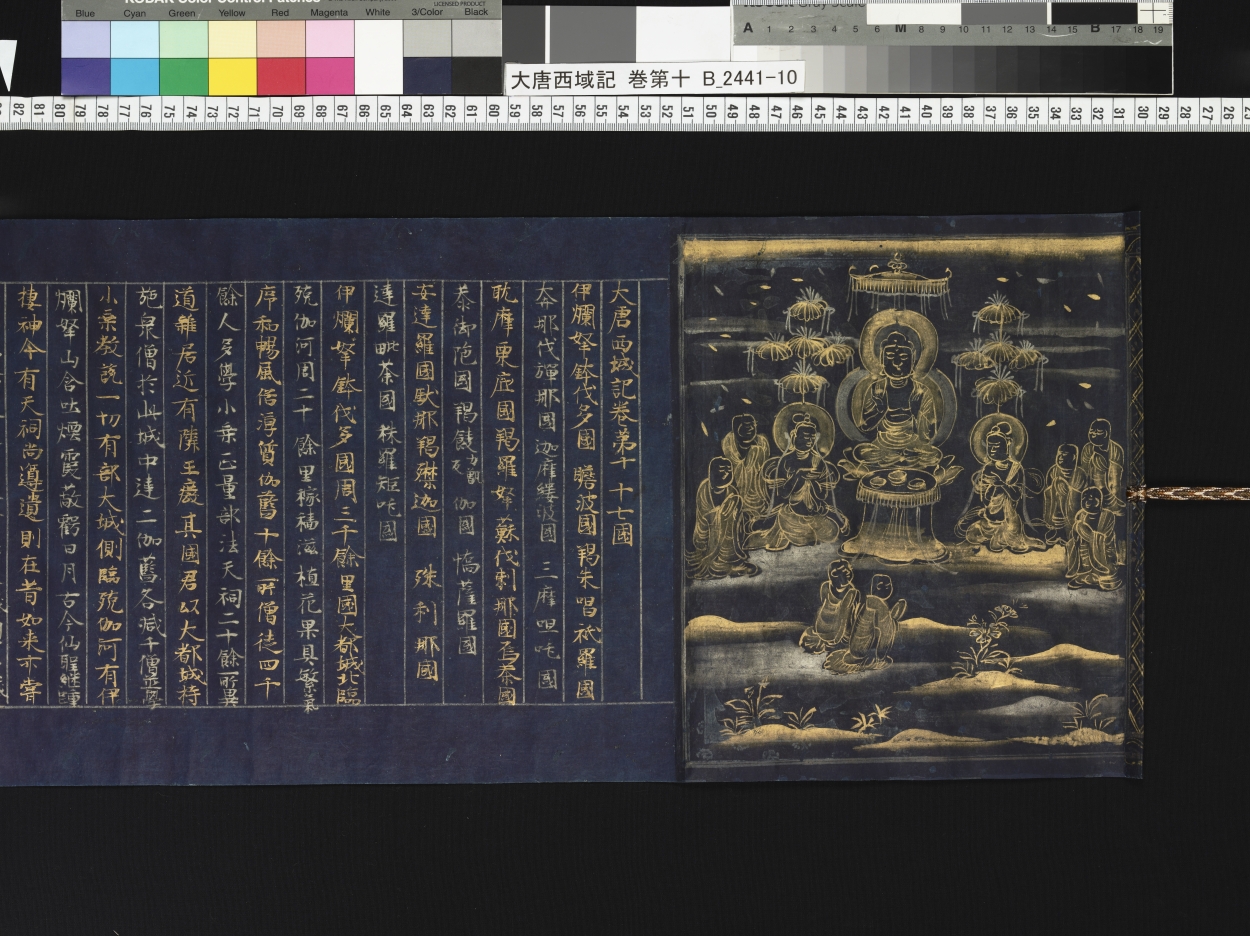 KODAK Color Control Patches
LICENSED PRODUCT
Blue Cyan Green Yellow Red Magenta White 3/Color Black
A 1 2 3 4 5 6 M 8 9 10 11 12 13 14 15 B 17 18 19
大唐西域記 巻第十 B_2441-10
82 81 80 79 78 77 76 75 74 73 72 71 70 69 68 67 66 65 64 63 62 61 60 59 58 57 56 55 54 53 52 51 50 49 48 47 46 45 44 43 42 41 40 39 38 37 36 35 34 33 32 31 30 29 28 27 26
大唐西域記卷第十 十七國
伊爛拏鉢伐多國 瞻波國 羯朱嗢祇羅國
奔那伐彈那國 迦摩縷波國 三摩呾吒國
耽摩栗底國 羯羅拏蘇伐剌那國 烏荼國
恭御陁國 羯 伽國 憍薩羅國
安達羅國 馱那羯磔迦國 珠利耶國
達羅毗荼國 秣羅矩吒國
伊爛拏鉢伐多國周三千餘里國大都城北臨
殑伽河周二十餘里稼穡滋植花果具繁氣
序和暢風俗淳質伽藍十餘所僧徒四千
餘人多學小乘正量部法天祠二十餘所異
道雜居近有隣王廢其國君以大都城持
施衆僧於此城中建二伽藍各減千僧並學
小乘教說一切有部大城側臨殑伽河有伊
爛拏山含吐煙霞蔽虧日月古今仙聖繼踵
棲神今有天祠尚遵遺則在昔如來亦嘗